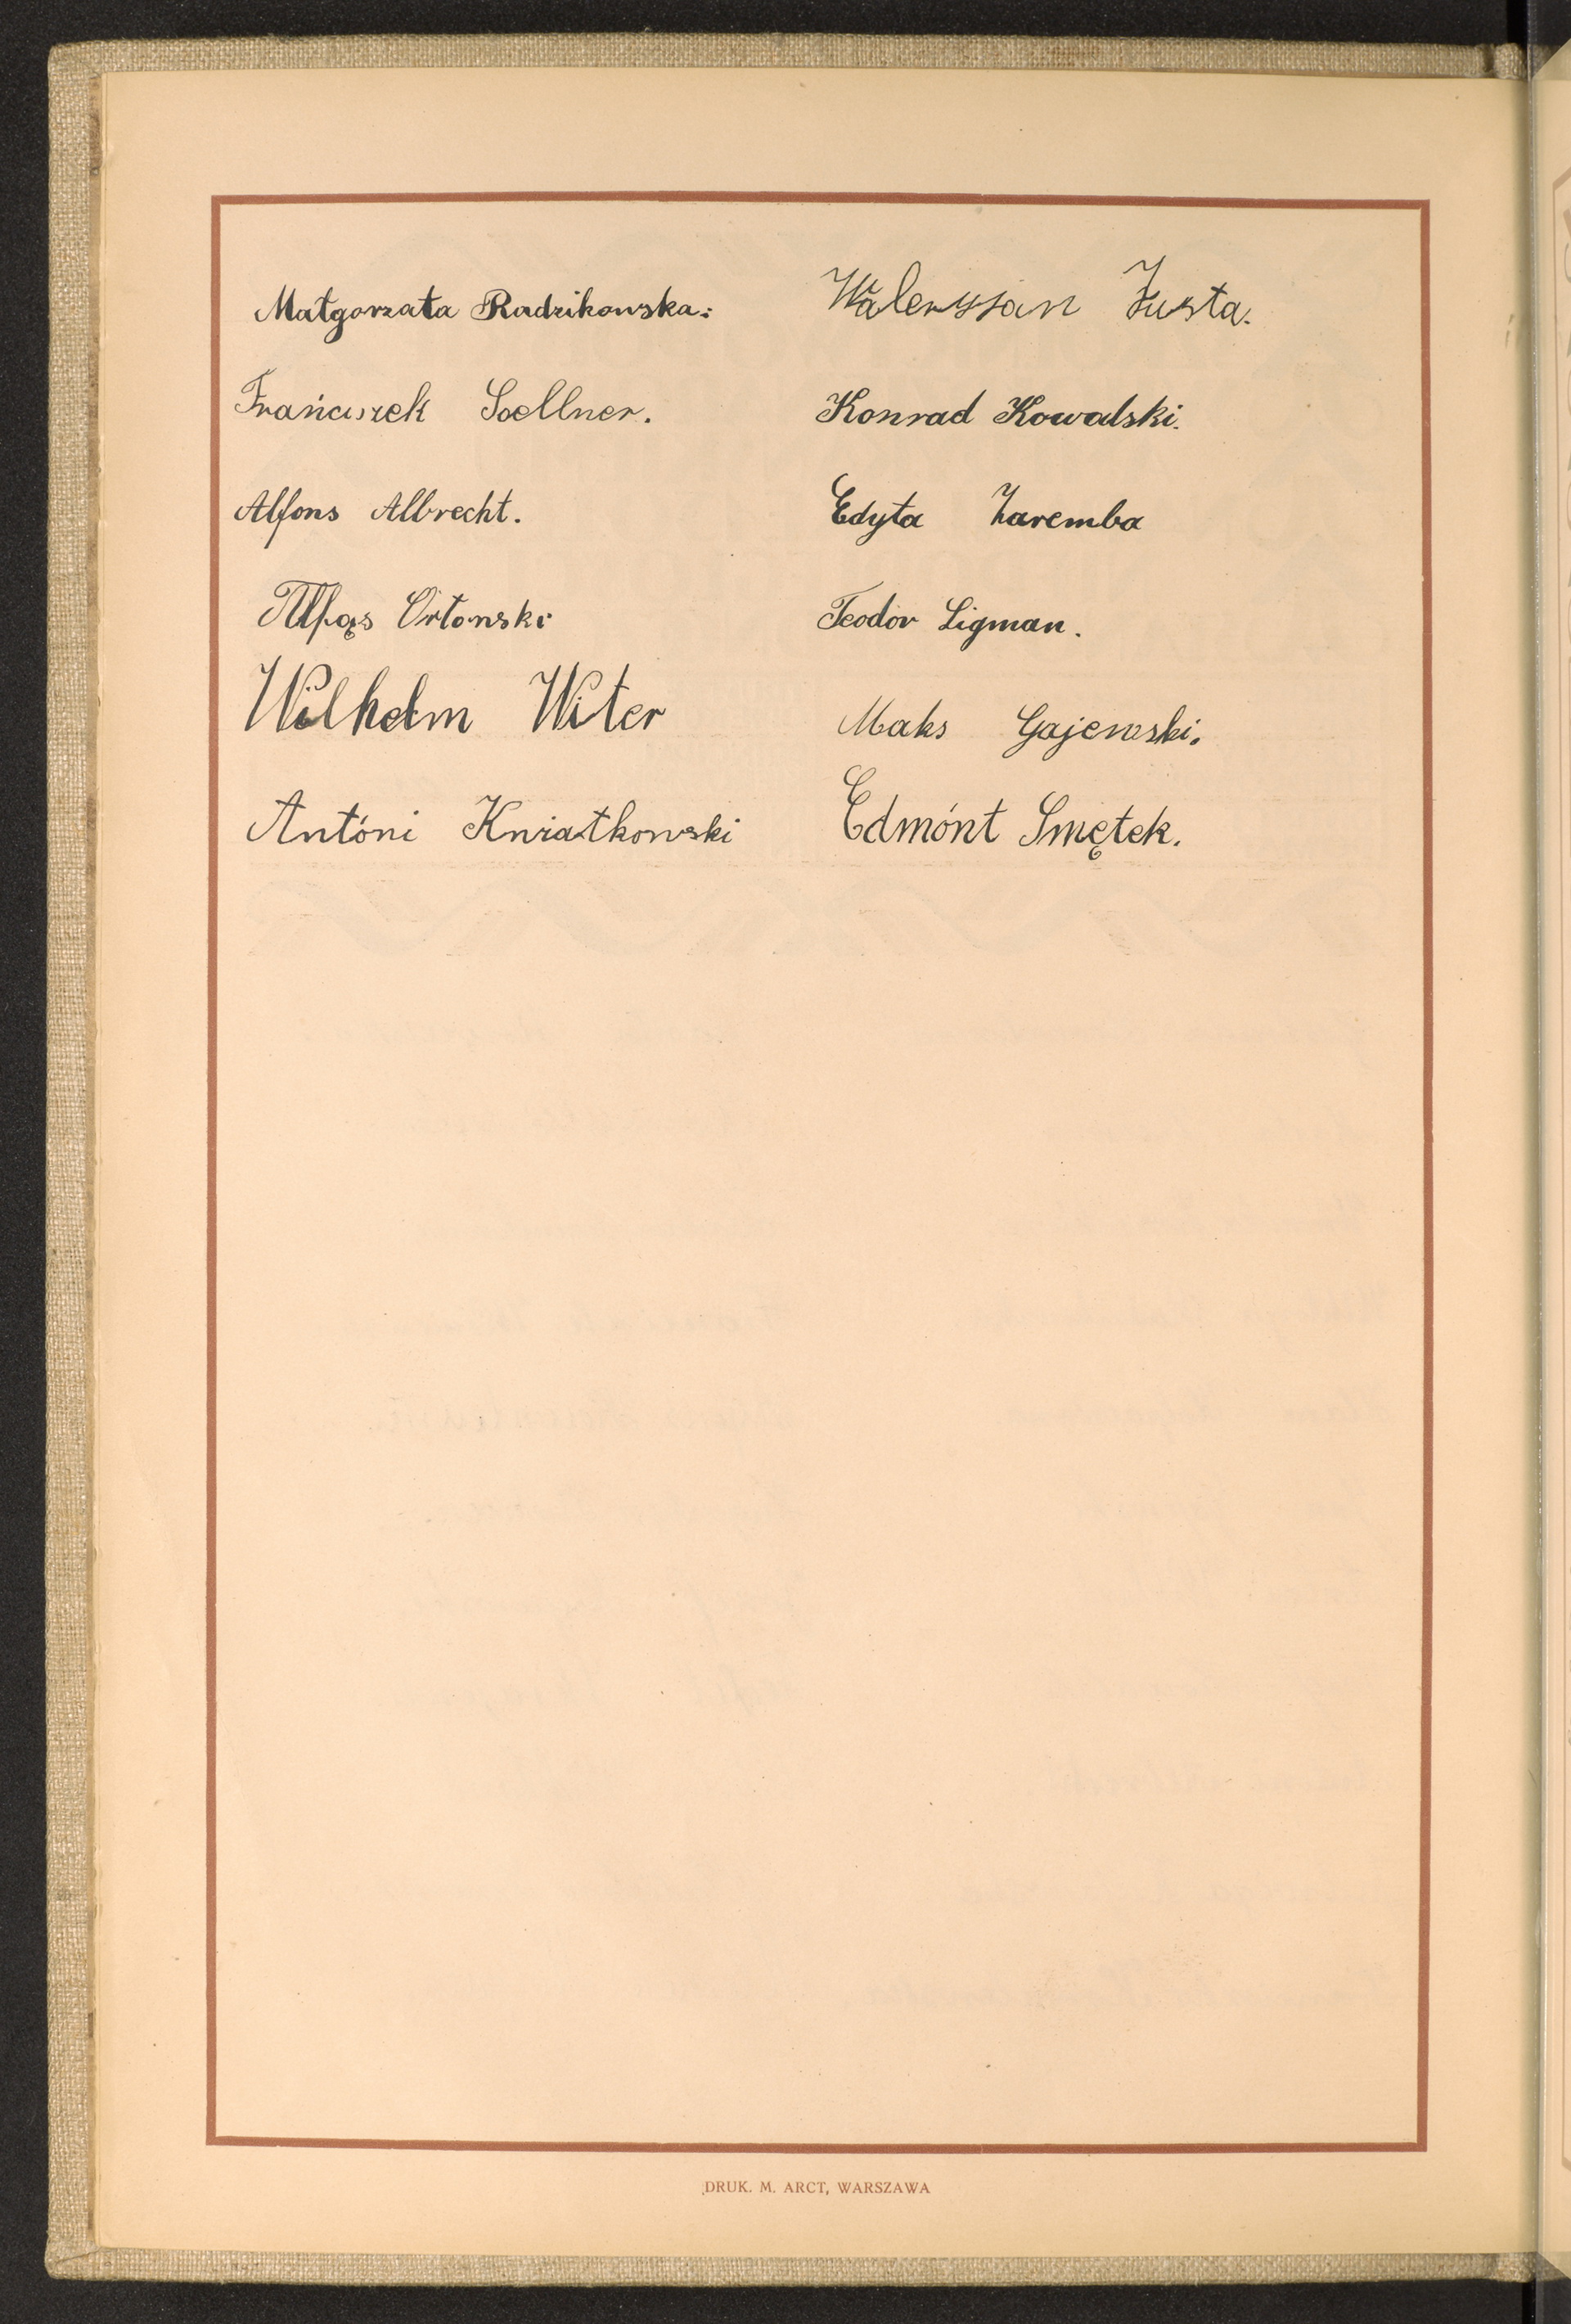 Małgorzata Radzikowska:
Frańciszek Soellner.
Alfons Albrecht.
Alfąs Ortonski
Wilhelm Witer
Antóni Kwiatkowski
Waleryjan Justa.
Konrad Kowalski.
Edyta Zaremba
Teodor Ligman.
Maks Gajewski.
Edmónt Smętek.
DRUK. M. ARCT, WARSZAWA